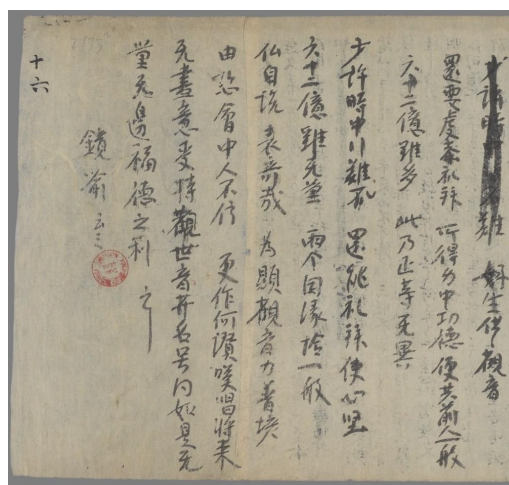 少許時中行者難　解生供觀音
還要虔奉礼拜　所得分中功德　便共前人一般
六十二億雖多　此乃正等无異
少許時中行難永　還能礼拜使心坚
六十二億雖无量　兩个因緣捻一般
仏自說　甚希哉　為顯觀音力普埃
由恐會中人不信　更作何讚嘆唱將来
无盡意受持觀世音菩名号得如是无
量无邊福德之利　之
鎖前云云
十六